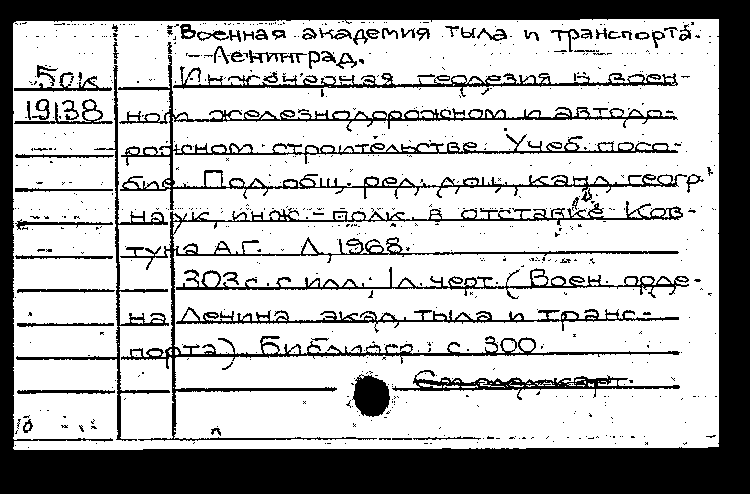 Военная академия тыла и транспорта.
— Ленинград.
50к Инженерная геодезия в воен-
19138 ном железнодорожном и автодо-
рожном строительстве. Учеб. посо-
бие. Под общ. ред. доц., канд. геогр.
наук, инж.-полк. в отставке Ков-
туна А.Г. Л., 1968.
303 с. с илл.; 1 л. черт. (Воен. орде-
на Ленина акад. тыла и транс-
порта). Библиогр.: с. 300.
См. след. карт.